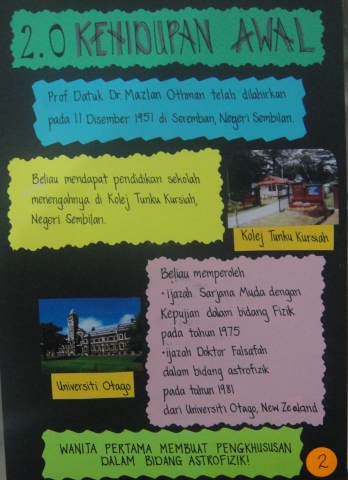 2.0 KEHIDUPAN AWAL
Prof. Datuk Dr. Mazlan Othman telah dilahirkan
pada 11 Disember 1951 di Seremban, Negeri Sembilan.
Beliau mendapat pendidikan sekolah
menengahnya di Kolej Tunku Kursiah,
Negeri Sembilan.
Kolej Tunku Kursiah
Beliau memperoleh
• ijazah Sarjana Muda dengan
Kepujian dalam bidang Fizik
pada tahun 1975
• ijazah Doktor Falsafah
dalam bidang astrofizik
pada tahun 1981
dari Universiti Otago, New Zealand
Universiti Otago
WANITA PERTAMA MEMBUAT PENGKHUSUSAN
DALAM BIDANG ASTROFIZIK!
2